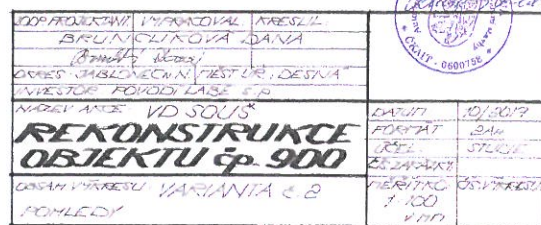 ZODP. PROJEKTANT VYPRACOVAL KRESLIL
BRUNCLÍKOVÁ DANA
OKRES JABLONEC N.N. MĚST. ÚŘ. DESNÁ
INVESTOR POVODÍ LABE s.p.
NÁZEV AKCE VD SOUŠ
REKONSTRUKCE
OBJEKTU čp. 900
OBSAH VÝKRESU VARIANTA č. 2
POHLEDY
DATUM 10/2017
FORMÁT 2A4
ÚČEL STUDIE
Č. ZAKÁZKY
MĚŘÍTKO Č. VÝKRESU
1:100
V MM
ČKAIT
0600758